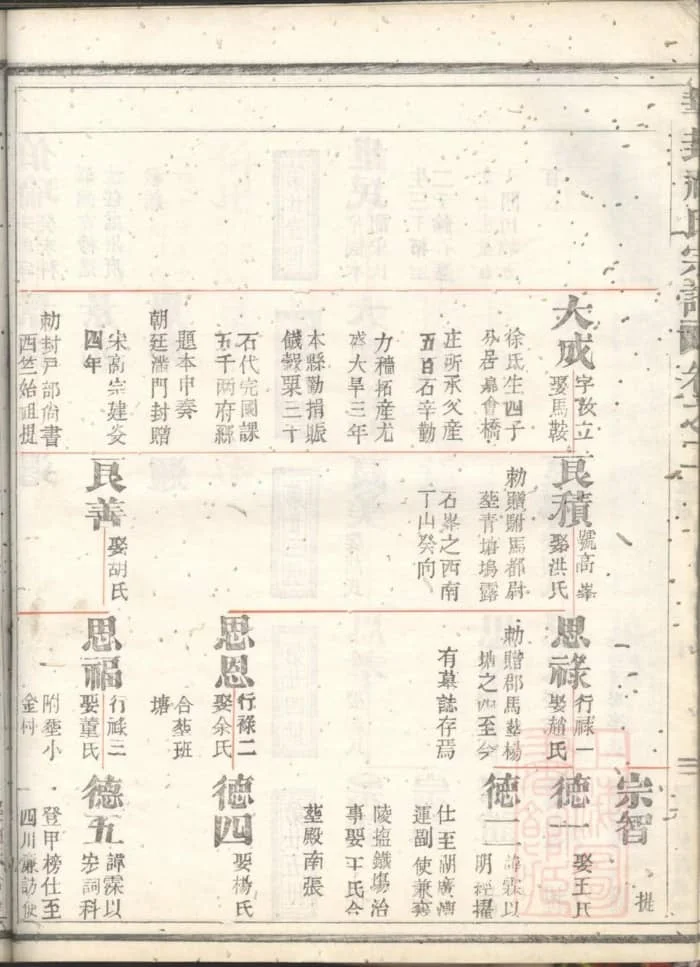 大成
字孜立
娶馬鞍
徐氏生四子
分居皐會橋
庄所承父産
五百石辛勤
力穡拓産尤
盛大旱三年
本縣勸捐賑
饑穀粟三千
石代完國課
五千两府縣
題本申奏
朝廷滿門封贈
宋高宗建炎
四年
勅封戸部尚書
西竺始祖提
良積
號高峯
娶洪氏
勅贈駙馬都尉
塟青塘塢露
石峯之西南
丁山癸向
良善
娶胡氏
思祿
行祿一
娶趙氏
勅贈郡馬塟楊
塘之四至今
有墓誌存焉
思恩
行祿二
娶余氏
合塟班
塘
思福
行祿三
娶董氏
附塟小
金村
宗智
提
德一
娶王氏
德二
諱霖以
明經擢
仕至湖廣漕
運副使兼
陵塩鐵塲冶
事娶王氏合
塟殿南張
德四
娶楊氏
德五
諱霖以
宏詞科
登甲榜仕至
四川廉訪使